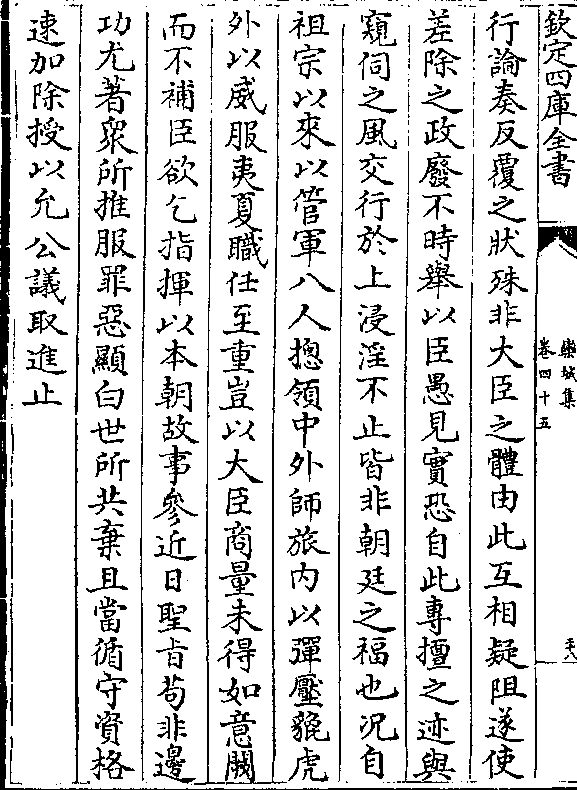 欽定四庫全書
欒城集
卷四十五
行論奏反覆之狀殊非大臣之體由此互相疑阻遂使
差除之政廢不時舉以臣愚見實恐自此專擅之迹與
窺伺之風交行於上浸淫不止皆非朝廷之福也況自
祖宗以來以管軍八人摠領中外師旅内以彈壓貔虎
外以威服夷夏職任至重豈以大臣商量未得如意闕
而不補臣欲乞指揮以本朝故事參近日聖㫖苟非邊
功尤著衆所推服罪惡顯白世所共棄且當循守資格
速加除授以允公議取進止